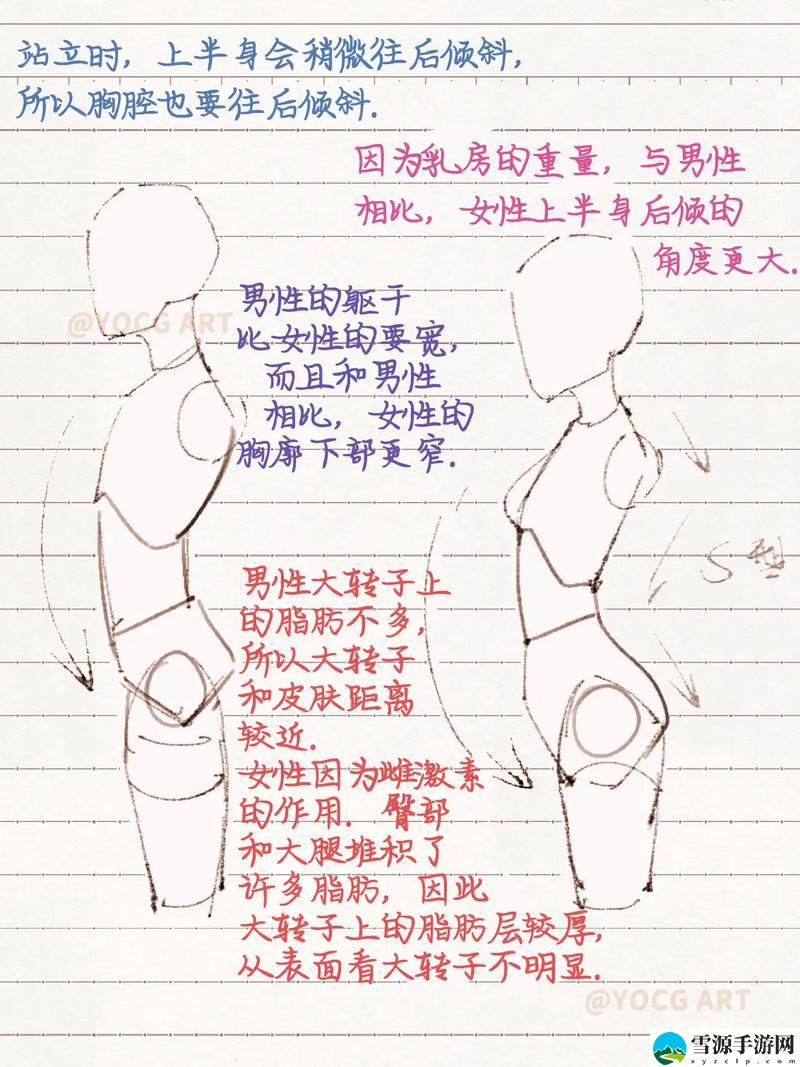 站立时，上半身会稍微往后倾斜，
所以胸腔也要往后倾斜.
因为乳房的重量，与男性
相比，女性上半身后倾的
角度更大.
@YOCG ART
男性的躯干
比女性的要宽，
而且和男性
相比，女性的
胸廓下部更窄.
S型
男性大转子上
的脂肪不多，
所以大转子
和皮肤距离
较近.
女性因为雌激素
的作用.臀部
和大腿堆积了
许多脂肪，因此
大转子上的脂肪层较厚，
从表面看大转子不明显.
@YOCG ART
雪源手游网
xyzclp.com